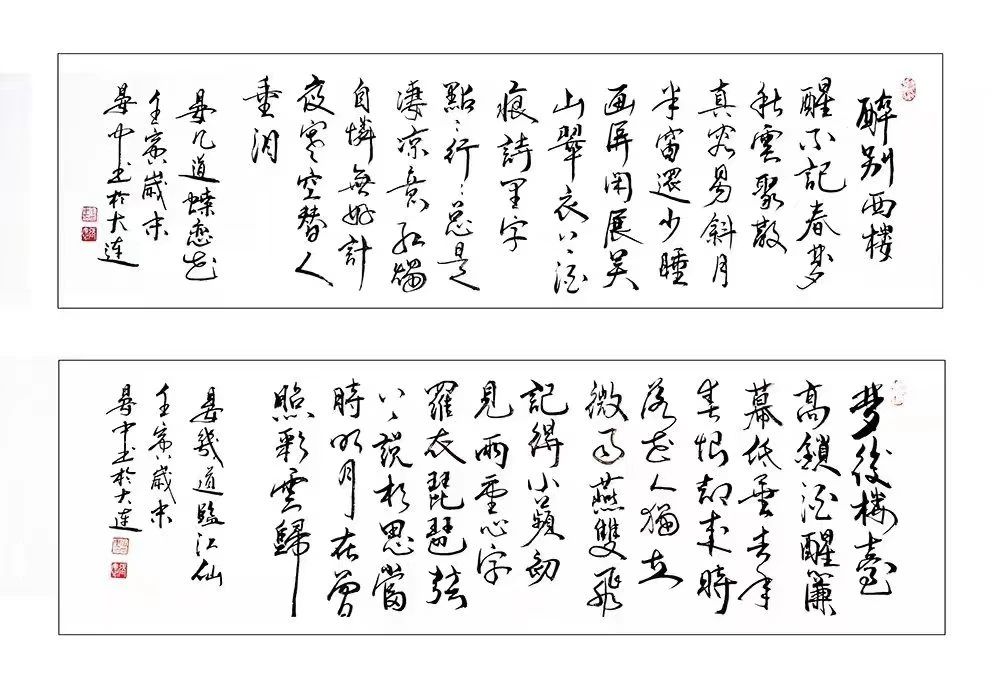 醉别西楼
醒不記春夢
秋雲聚散
真容易斜月
半窗還少睡
画屏闲展吴
山翠衣上酒
痕詩里字
點〻行〻总是
淒凉意红燭
自憐無好計
夜寒空替人
垂泪
晏几道蝶恋花
壬寅歲末
中书於大連
夢後樓臺
高鎖酒醒簾
幕低垂去年
春恨却来時
落花人獨立
微雨燕雙飛
記得小蘋初
見兩重心字
羅衣琵琶弦
上説相思當
時明月在曾
照彩雲歸
晏幾道臨江仙
壬寅歲末
中书於大連